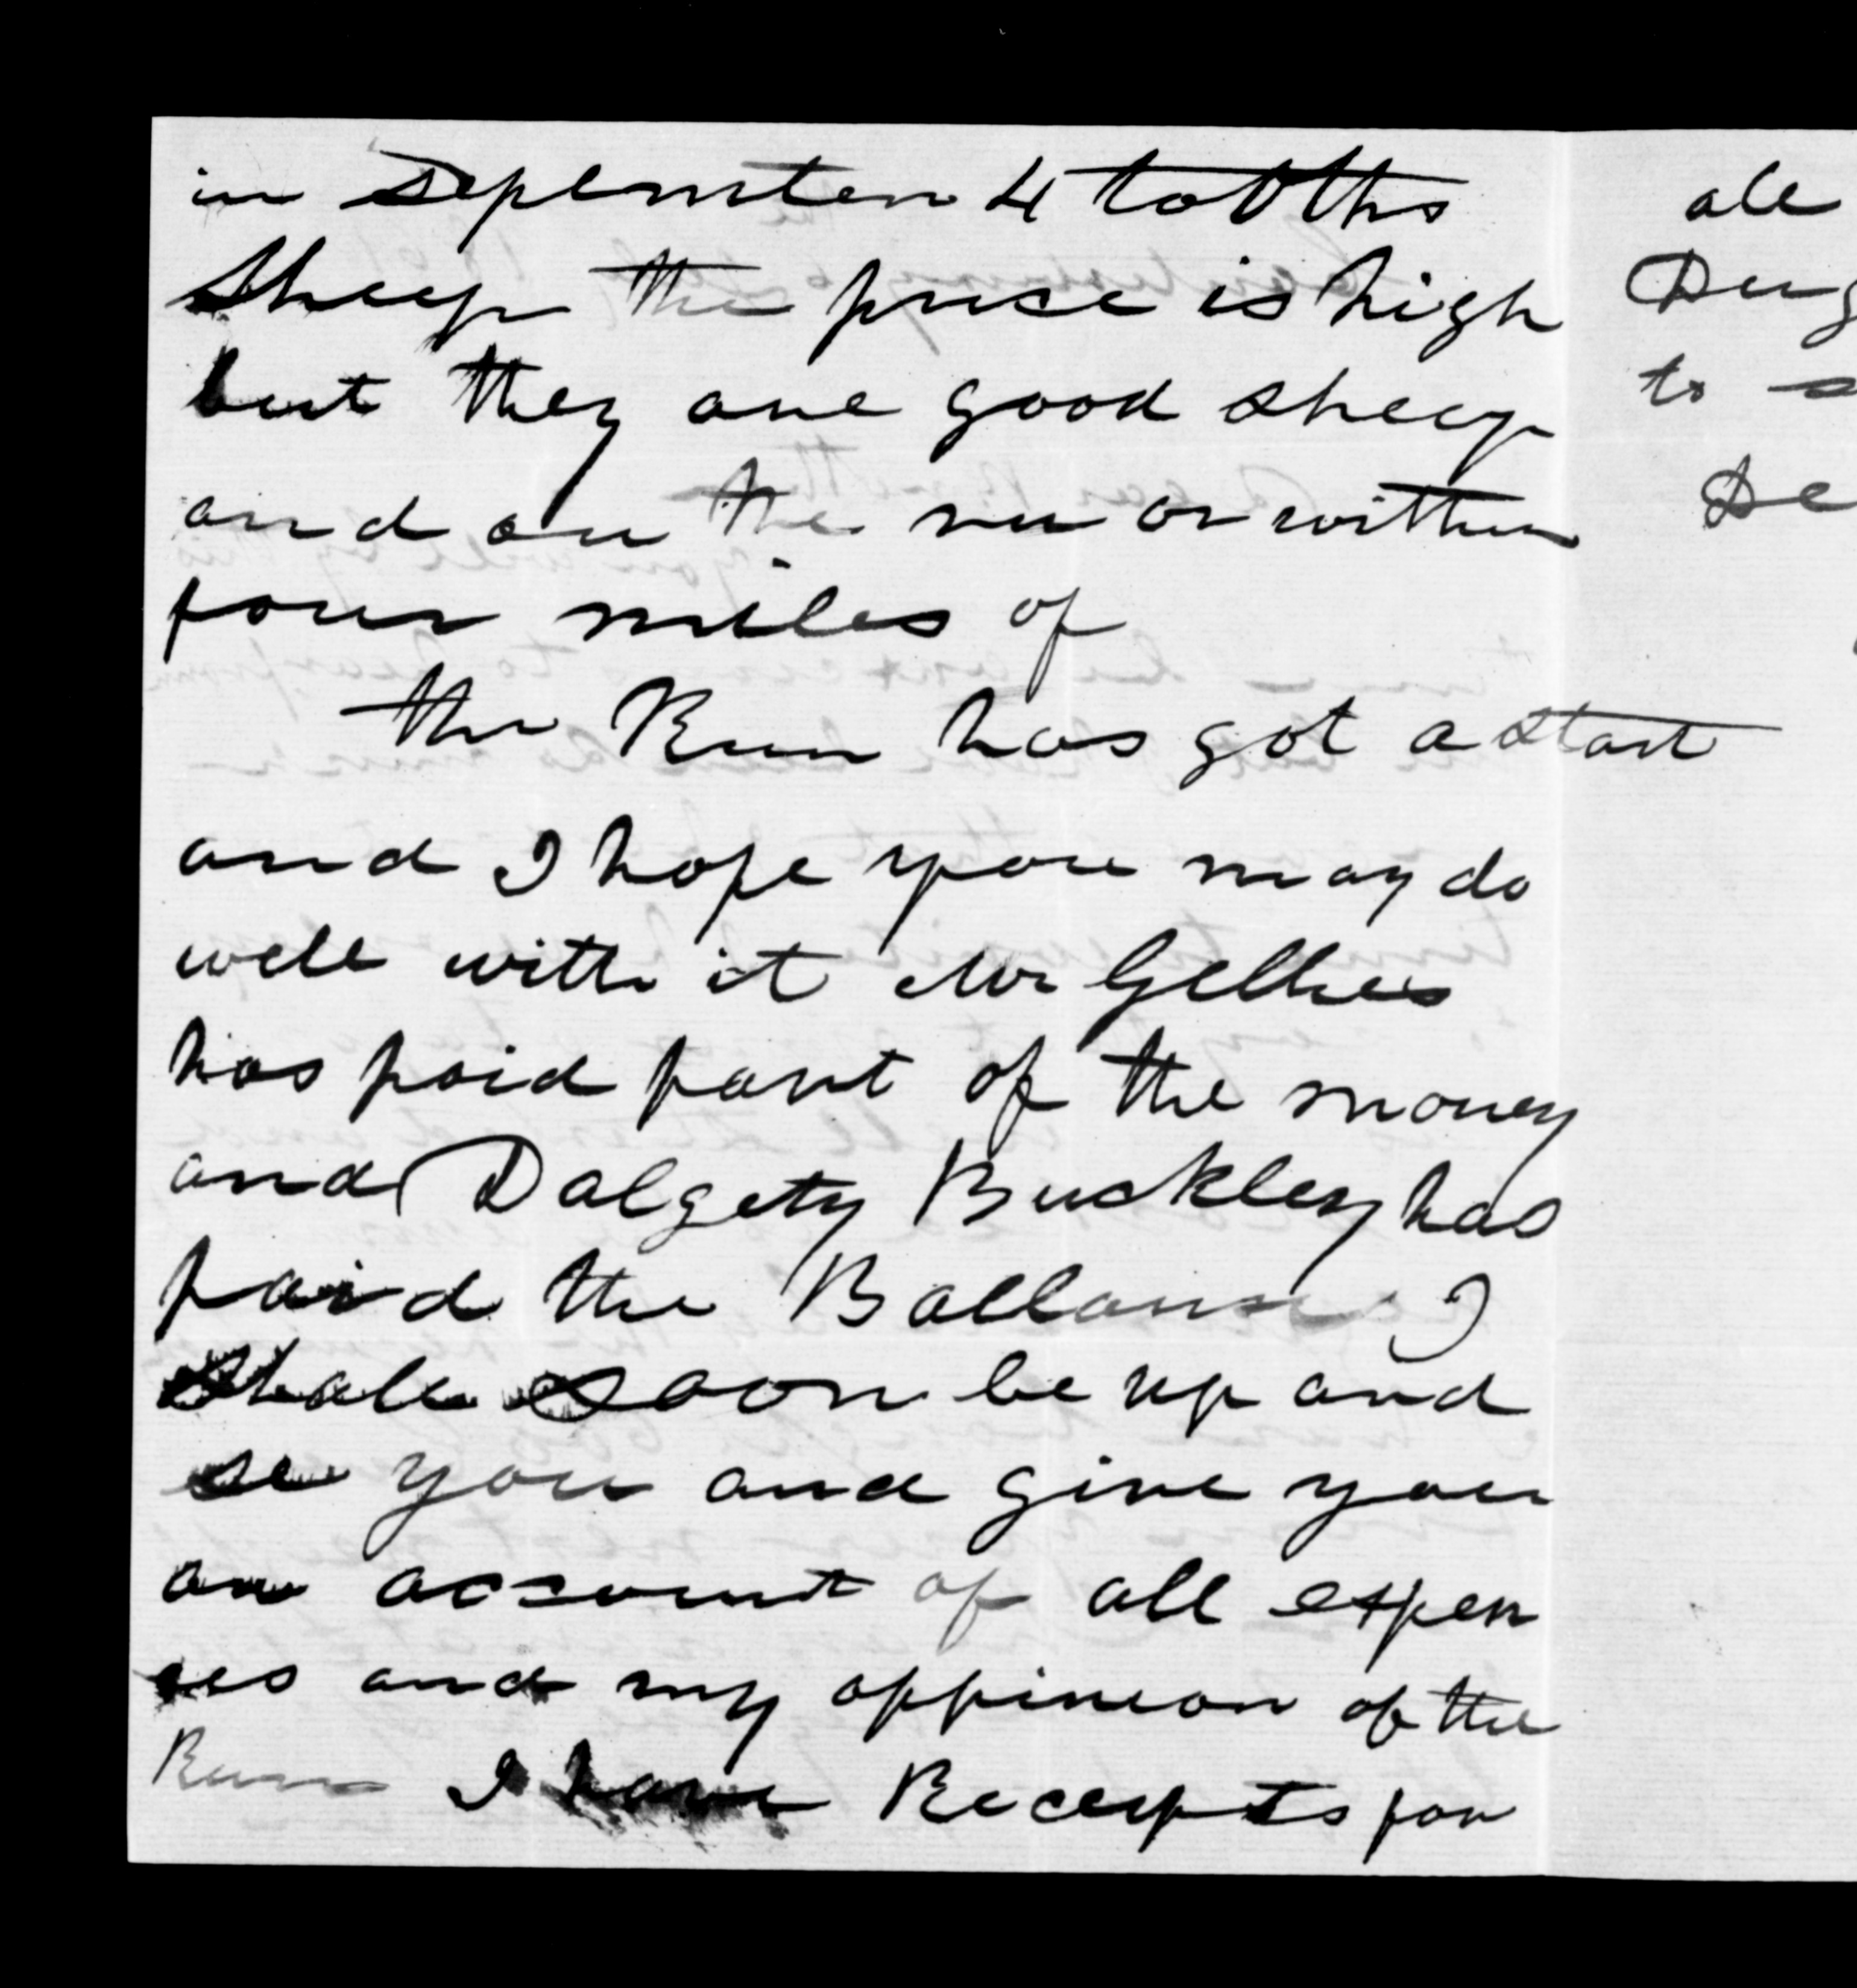 in September 4 tooths
Sheep the price is high
but they are good sheep
and on the run or within
four miles of
the Run has got a start
and I hope you may do
well with it Mr Gellies
has paid part of the money
and Dalgety Buckley has
paid the Ballanse I
Shall soon be up and
se you and give you
an account of all expen
ses and my oppinion of the
Run I have Receipts for
all
to